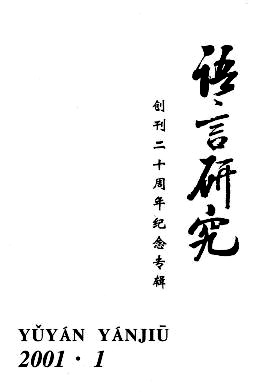 语言研究
创刊二十周年纪念专辑
YǓYÁN YÁNJIŪ
2001·1